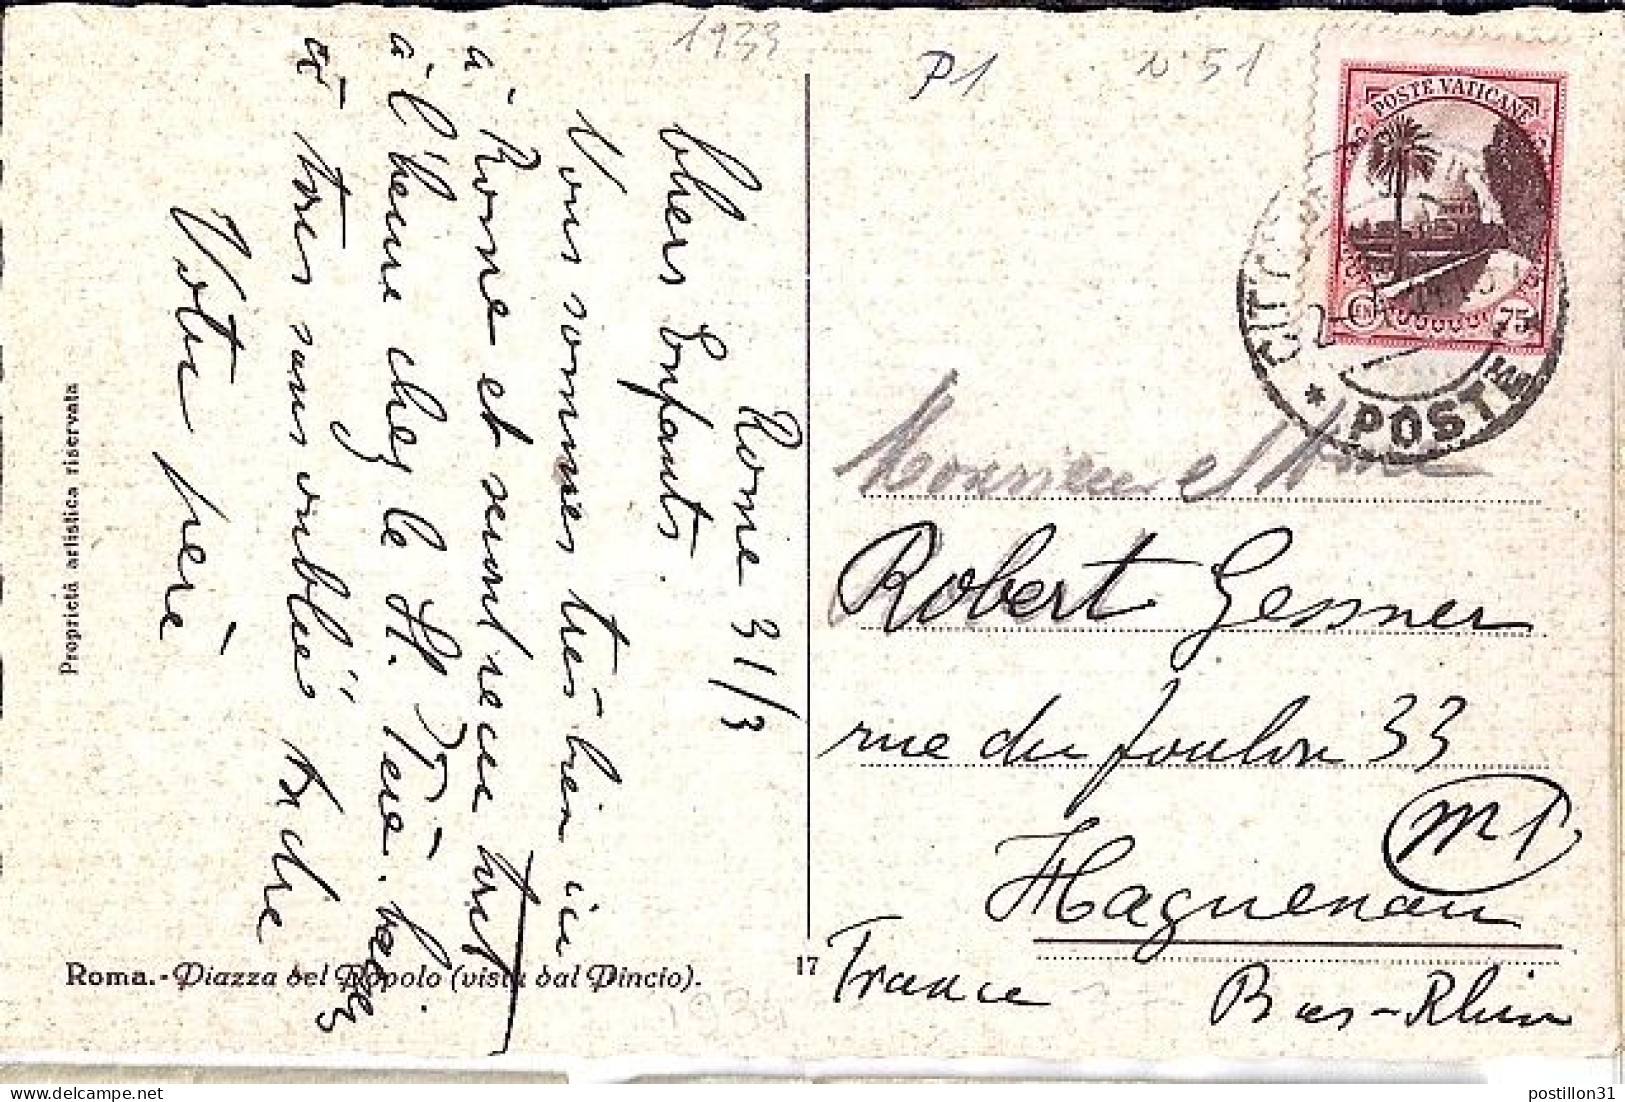 1933
P1
N° 51
POSTE VATICANE
CEN 75
CITTÀ
POSTE
Rome 31/3
Chers Enfants.
Nous sommes très bien ici
à Rome et serons reçus tout
à l'heure chez le St. Père. baisers
à tous sans oublier André
Votre père
Monsieur et Mme
Robert Gessner
rue du foulon 33
Haguenau
M1
France
Bas-Rhin
Proprietà artistica riservata
Roma.- Piazza del Popolo (vista dal Pincio).
17
1934
postillon31